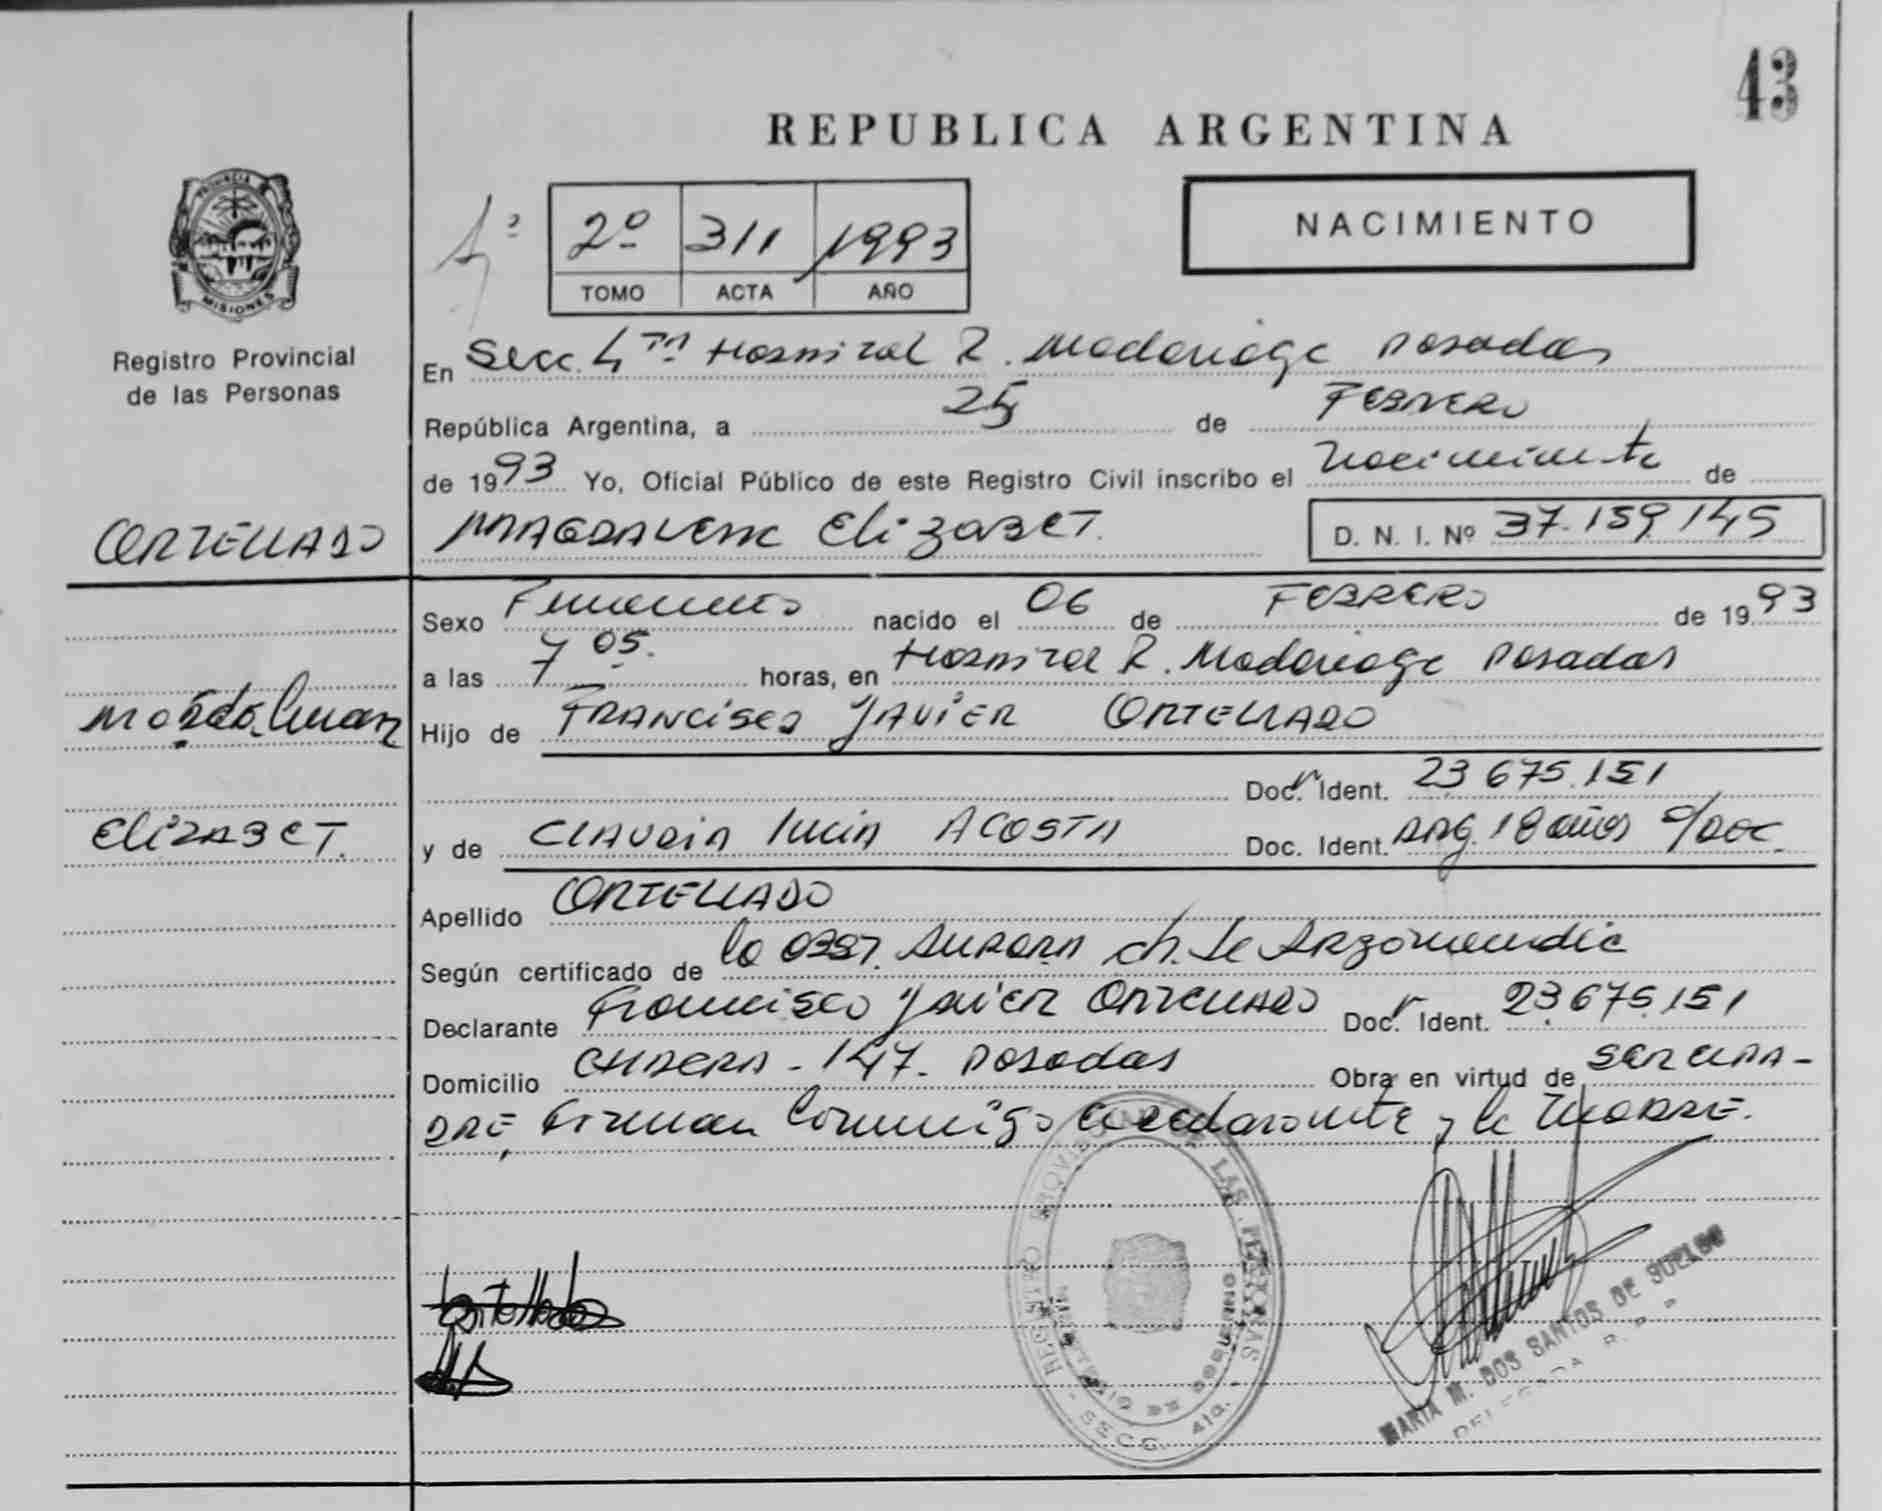 43
REPUBLICA ARGENTINA
2º 311 1993
TOMO ACTA AÑO
NACIMIENTO
PROVINCIA DE
MISIONES
Registro Provincial
de las Personas
En Secc. 4ta Hospital R. Madariaga Posadas
República Argentina, a 25 de FEBRERO
de 1993 Yo, Oficial Público de este Registro Civil inscribo el nacimiento de
MAGDALENA ElizaBET. D. N. I. Nº 37.159.145
CORTELLADO
Sexo Femenino nacido el 06 de FEBRERO de 1993
a las 7 05. horas, en Hospital R. Madariaga Posadas
Hijo de FRANCISCO JAVIER CORTELLADO
Magdalena
Doc. Ident. 23.675.151
y de CLAUDIA LUCIA ACOSTA Doc. Ident. ARG. 18 años s/DOC.
EliZABET.
Apellido CORTELLADO
Según certificado de la OBST. AURORA ch. de
Declarante Francisco Javier CORTELLADO Doc. Ident. 23.675.151
Domicilio CHACRA - 147. Posadas Obra en virtud de SER SU PA-
DRE, Firman conmigo el declarante y la MADRE.
REGISTRO PROVINCIAL DE LAS PERSONAS
SECC. 4ta.
MARIA M. DOS SANTOS DE SUELDO
DELEGADA R. P. P.